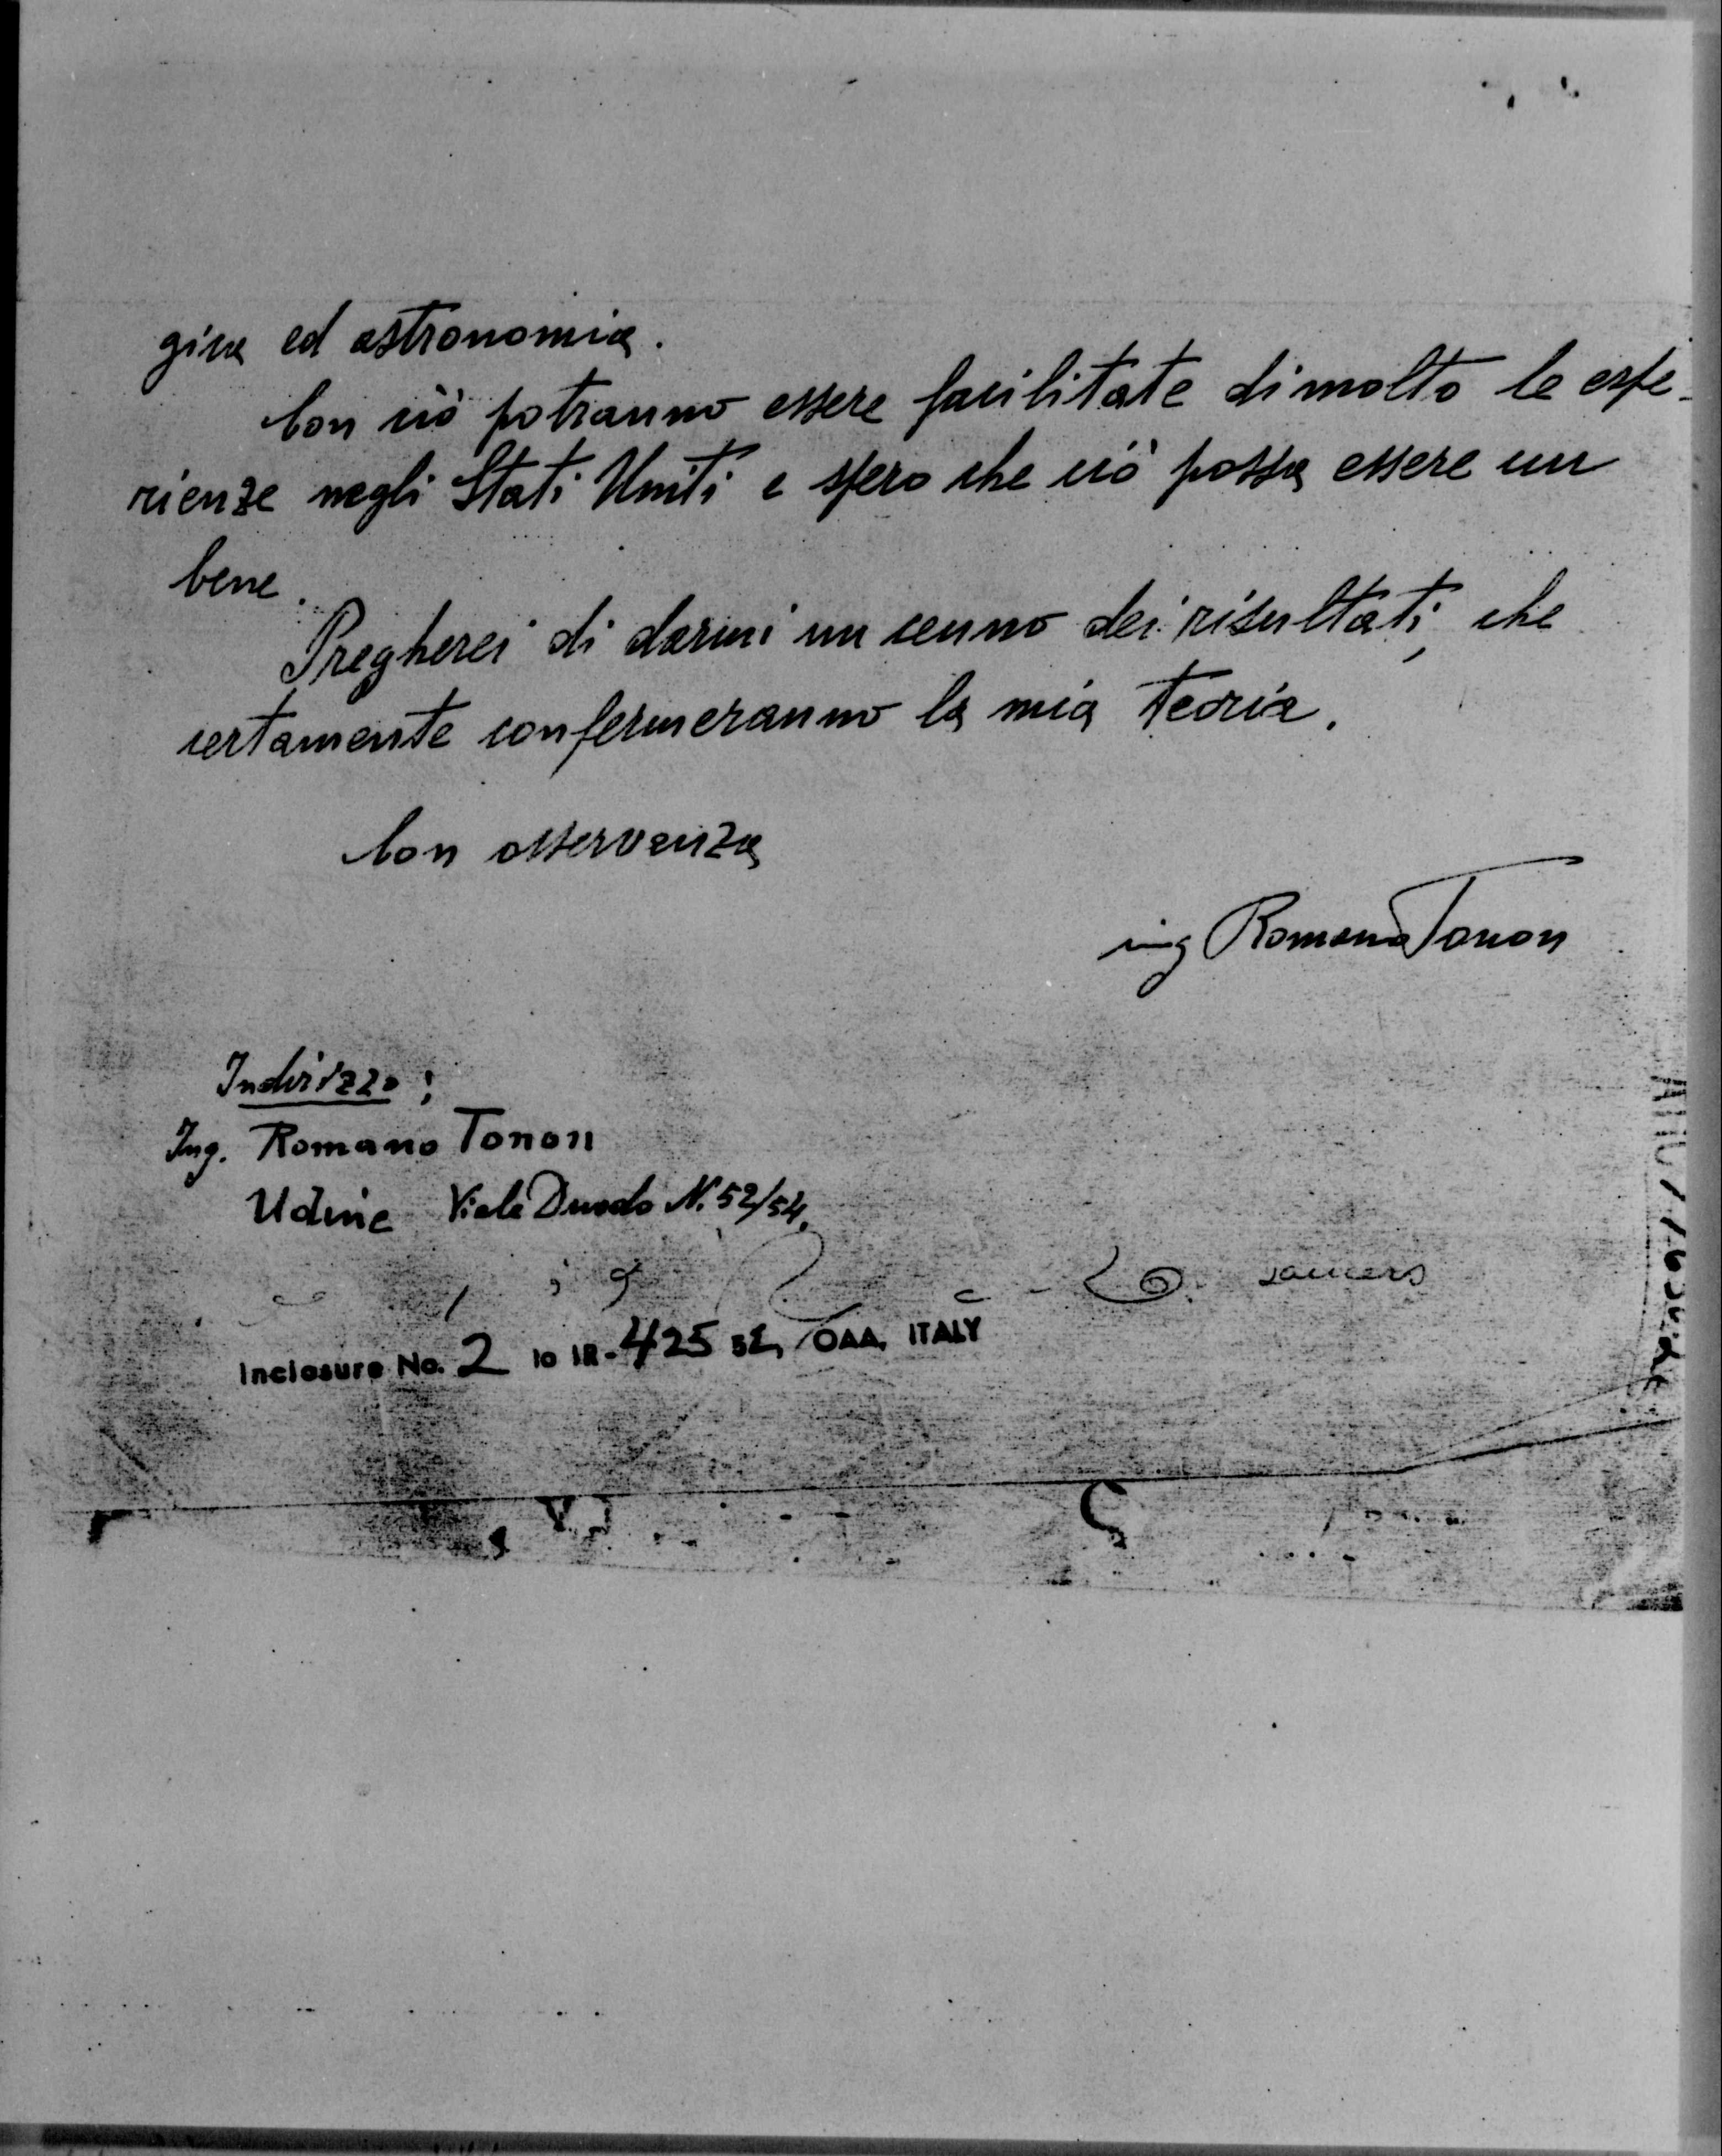 gica ed astronomia.
Con ciò potranno essere facilitate di molto le espe-
rienze negli Stati Uniti e spero che ciò possa essere un
bene.
Pregherei di darmi un cenno dei risultati, che
certamente confermeranno la mia teoria.
Con osservanza
ing Romano Tonon
Indirizzo:
Ing. Romano Tonon
Udine Viale Duodo N. 52/54.
saucers
Inclosure No. 2 to IR-425 52, OAA, ITALY